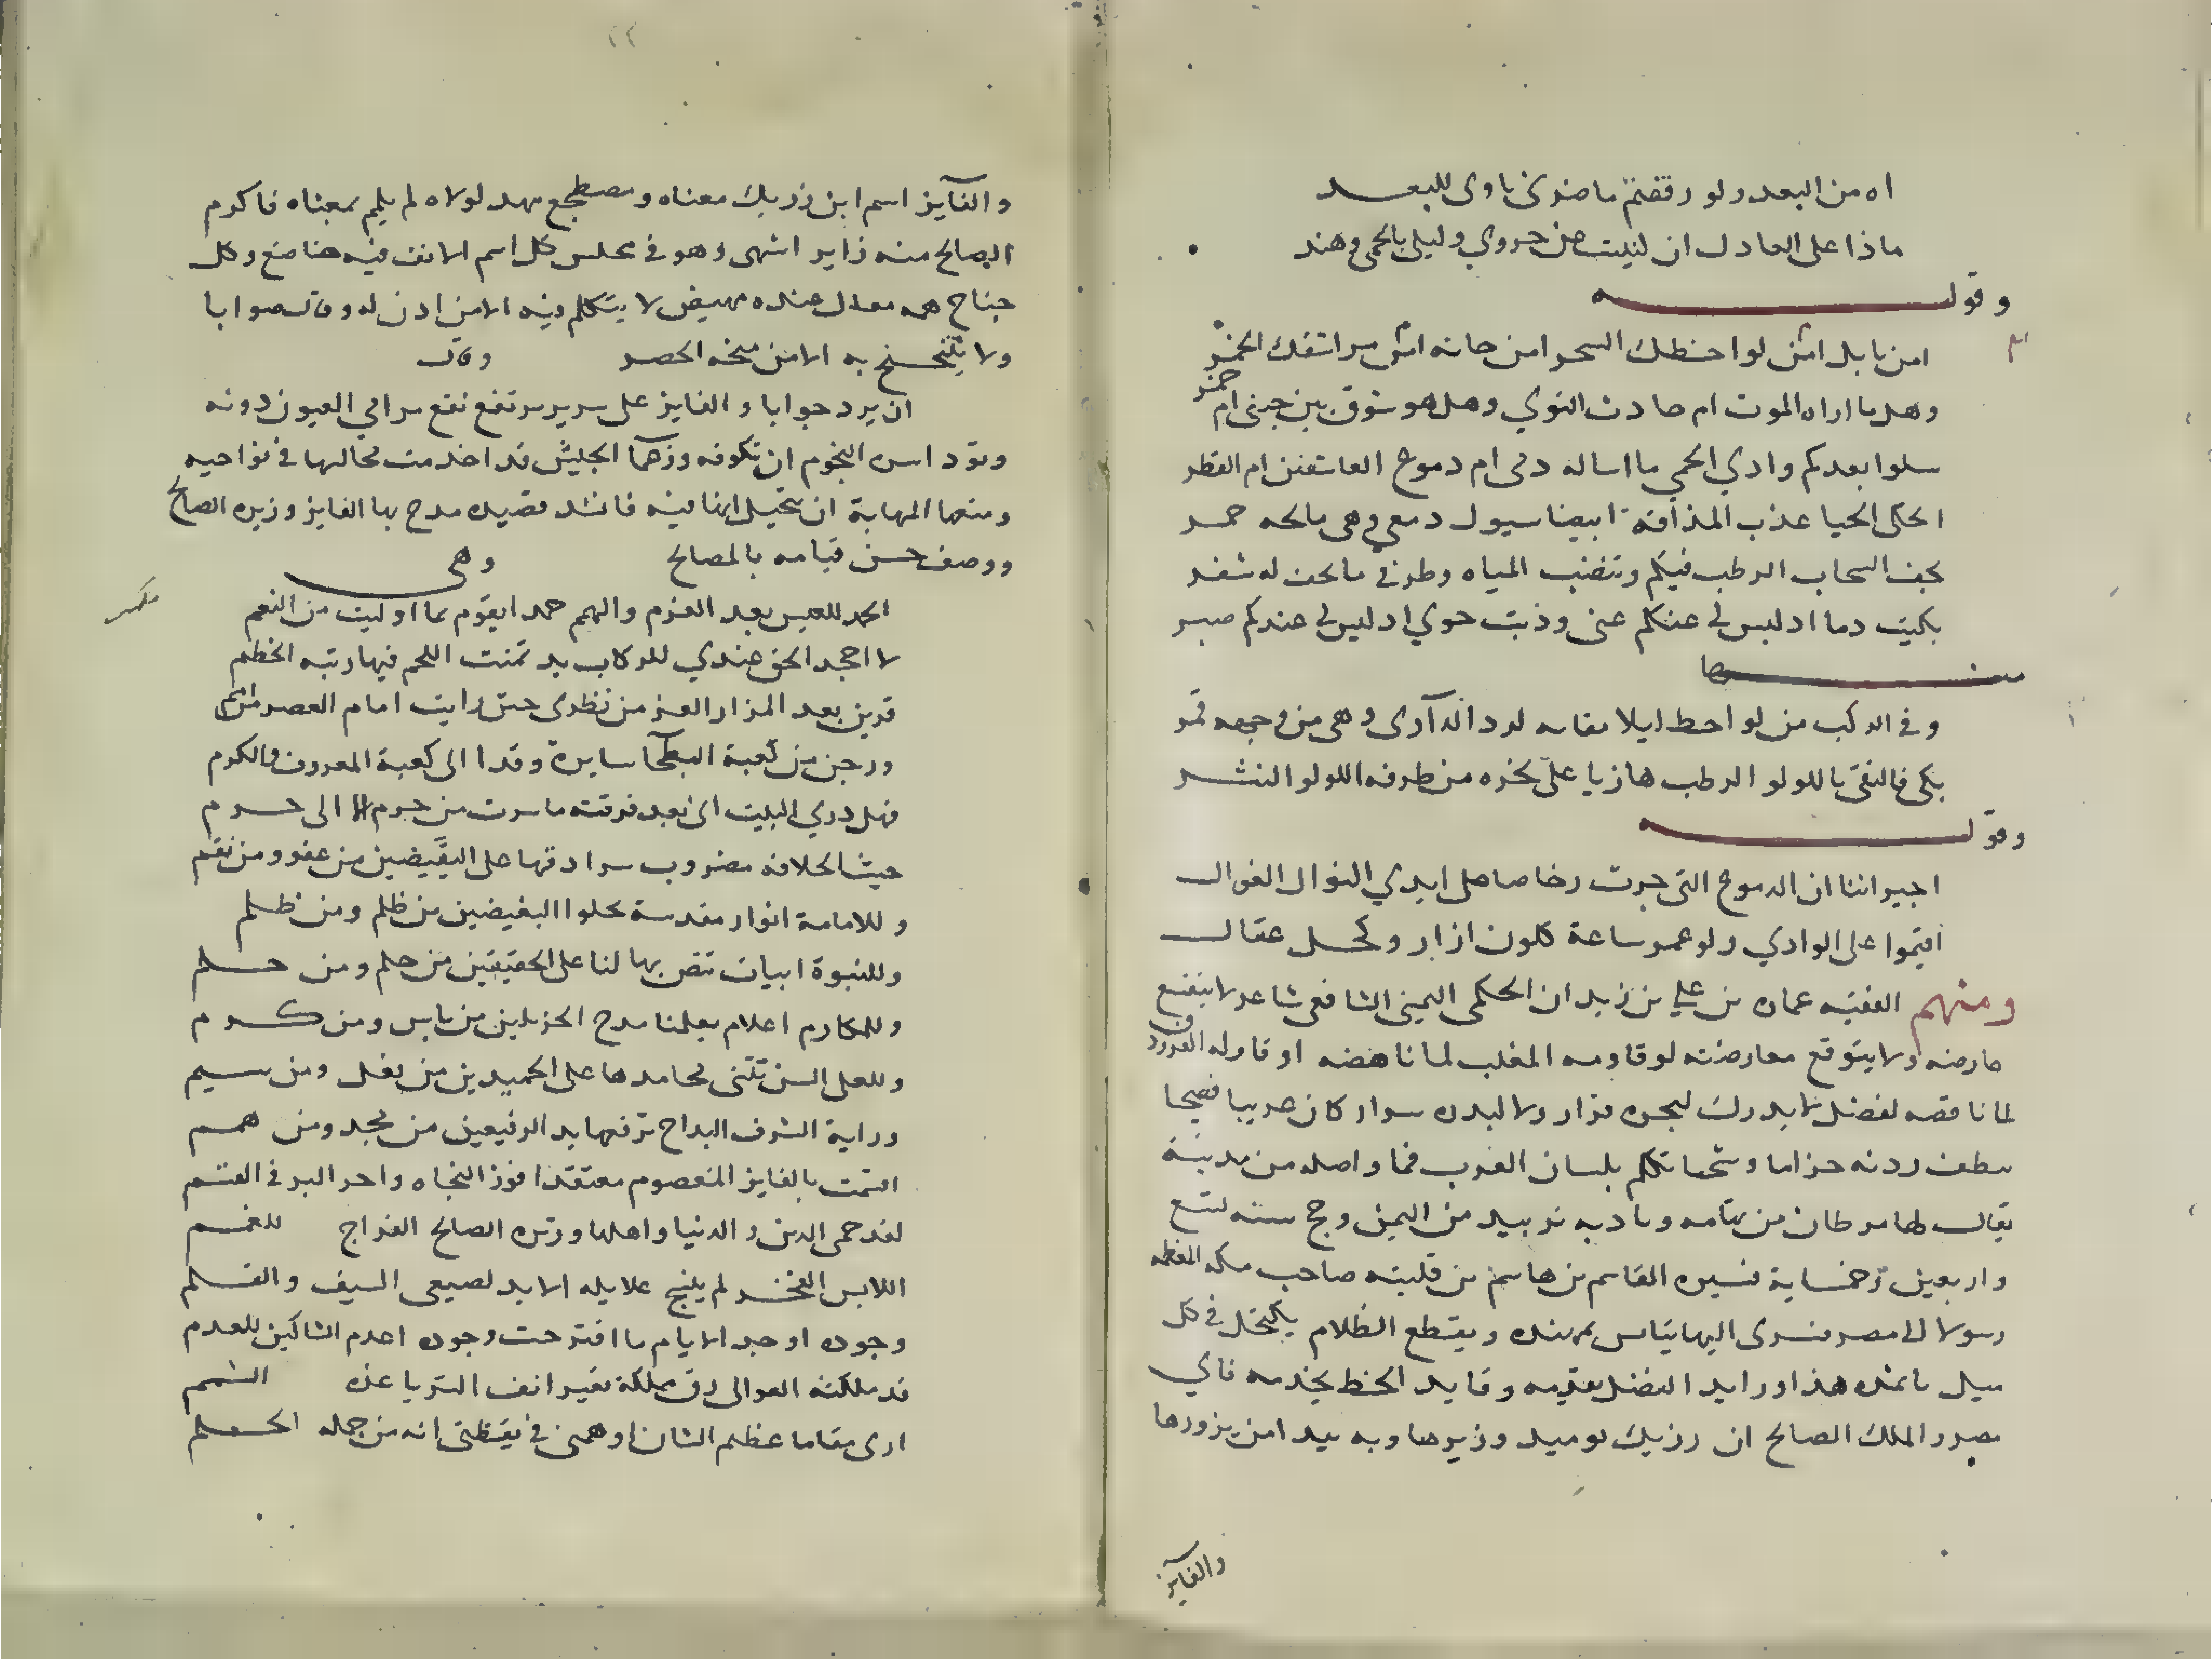 اه من البعد ولو رفقتم ما ضرني ناوي للبعـــد
ماذا على العادل ان لنيت عن حروي وليلى بالحمى وهند
وقولـــه
امن بابل امن لواحظك السحر امن حانه امن مراشفك الخمر
وهل ما اراه الموت ام حادث النوي وهل هو شوق بين جبنى ام جمر
سلوا بعدكم وادي الحمي ما اساله دمى ام دموع العاشقين ام القطر
احكى الحيا عذب المذاقة ابيضا سيول دمعي وهى مالحه حمـر
يجف السحاب الرطب فيكم وتنضب المياه وطرفي ما يجف له شفـر
بكيت دما اد ليس لى عنكم غنى وذبت جوي اد ليس لى عندكم صبـر
منـــها
وفي الركب من لو احط ليلا نقابه لرد الدآرى وهى من وجهه قمر
بكى فالتقى باللولو الرطب هازيا على نحره من طرفه اللولو النثـــر
وقولـــه
اجيراننا ان الدموع التى جرت رخاصا على ايدي النوا الغوالـــ
اقيموا على الوادي ولو عمر ساعة كلون ازار وكحـل عقالـــ
ومنهم الفقيه عماره بن علي بن زيدان الحكمى اليمنى الشافعى شاعر لا ينفع
عارضه ولا يتوقع معارضته لو قاومه المغلب لما ناهضه او قاوله الفرزدق
لما ناقضه لفضل لا يدرك لبحره قرار ولا لبدره سرار كان عربيا فصيحا
يطعن ردنه حزاما وشحا تكلم بلسان العرب فما واصله من مدينة
يقال لها مرطان من تهامه وتادبه بزبيد من اليمن وحج سنه تسع
واربعين وخمساية فسيره القاسم بن هاشم بن فليته صاحب مكه المعظمه
رسولا الى مصر فسرى اليها يتاس بمهنده ويقتطع الظلام يكتحل في كل
ميل باثمده هذا ورايد الفضل يقدمه وقايد الحظ يخدمه فاي
مصر والملك الصالح ابن رزيك يوميد وزيرها وبه بيد امن يزورها
والفايز
والفآيز اسم ابن رزيك معناه ومضطجع مهد لولاه لم يلم بمعناه فاكرم
الصالح منه زايرا اشهى وهو في مجلس كل اسم الانف فيه خاضع وكل
جناح همه مقال عنده مهيض لا يتكلم فيه الا من اذن له وقال صوابا
ولا يتنحنح به الا من منحه الحصـر وقال
ان يرد جوابا والفايز على سرير مرتفع تقع مرامي العيون دونه
وتود اسره النجوم ان تكونه وزها الجليس قد اخدمت محالها في نواحيه
ومنعها المهابة ان تتخيل انها فيه فانشد قصيده مدح بها الفايز وزيره الصالح
ووصف حسن قيامه بالمصالح وهى
الحمد للعيس بعد العزم والهمم حمدا يقوم بما اوليت من النعم
لا اجحد الحق عندي للركاب يد تمنت اللجم فيها رتبه الخطم
قربن بعد المزار العز من نظري حتى رايت امام العصر من امم
ورحن من كعبة البطحا سايرة وفدا الى كعبة المعروف والكرم
فهل دري البيت انى بعد فرقته ما سرت من حرم الا الى حـــرم
حيث الخلافه مضروب سرادقها على النقيضين من عفو ومن نقم
وللامامة انوار مقدسة تجلوا البغيضين من ظلم ومن ظلـم
وللنبوة ابيات تنص بها لنا على الحقيقين من حلم ومن حـــلم
وللمكارم اعلام يعلمنا مدح الجزيلين من باس ومن كـــرم
وللعلى السن تثنى محامدها على الحميدين من فعل ومن شيـم
وراية الشرف البداح ترفعها يد الرفيعين من مجد ومن همـم
اقتمت بالفايز المعصوم معتقدا فوز النجاه واجر البر في القسـم
لقد حمى الدين والدنيا واهلها وزيره الصالح الفراج للغمـم
اللابس الفخـر لم ينسج غلايله الا يد لصيعى السيف والقـــلم
وجوده اوجد الايام ما اقترحت وجوده اعدم الشاكين للعدم
قد ملكته العوالى رق مملكة تعير انف الثريا عزه الشمم
ارى مقاما عظيم الشان اوهمنى في يقظتى انه من جمله الحـلم